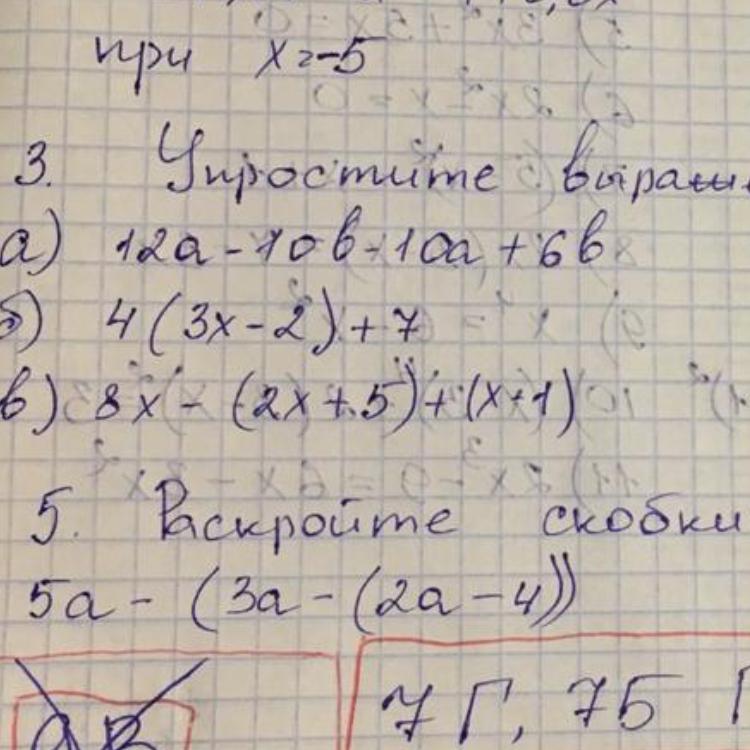 при x=-5
3. Упростите
а) 12a-10b-10a+6b
б) 4(3x-2)+7
в) 8x-(2x+5)+(x-1)
5. Раскройте скобки
5a-(3a-(2a-4))
7Г, 7Б